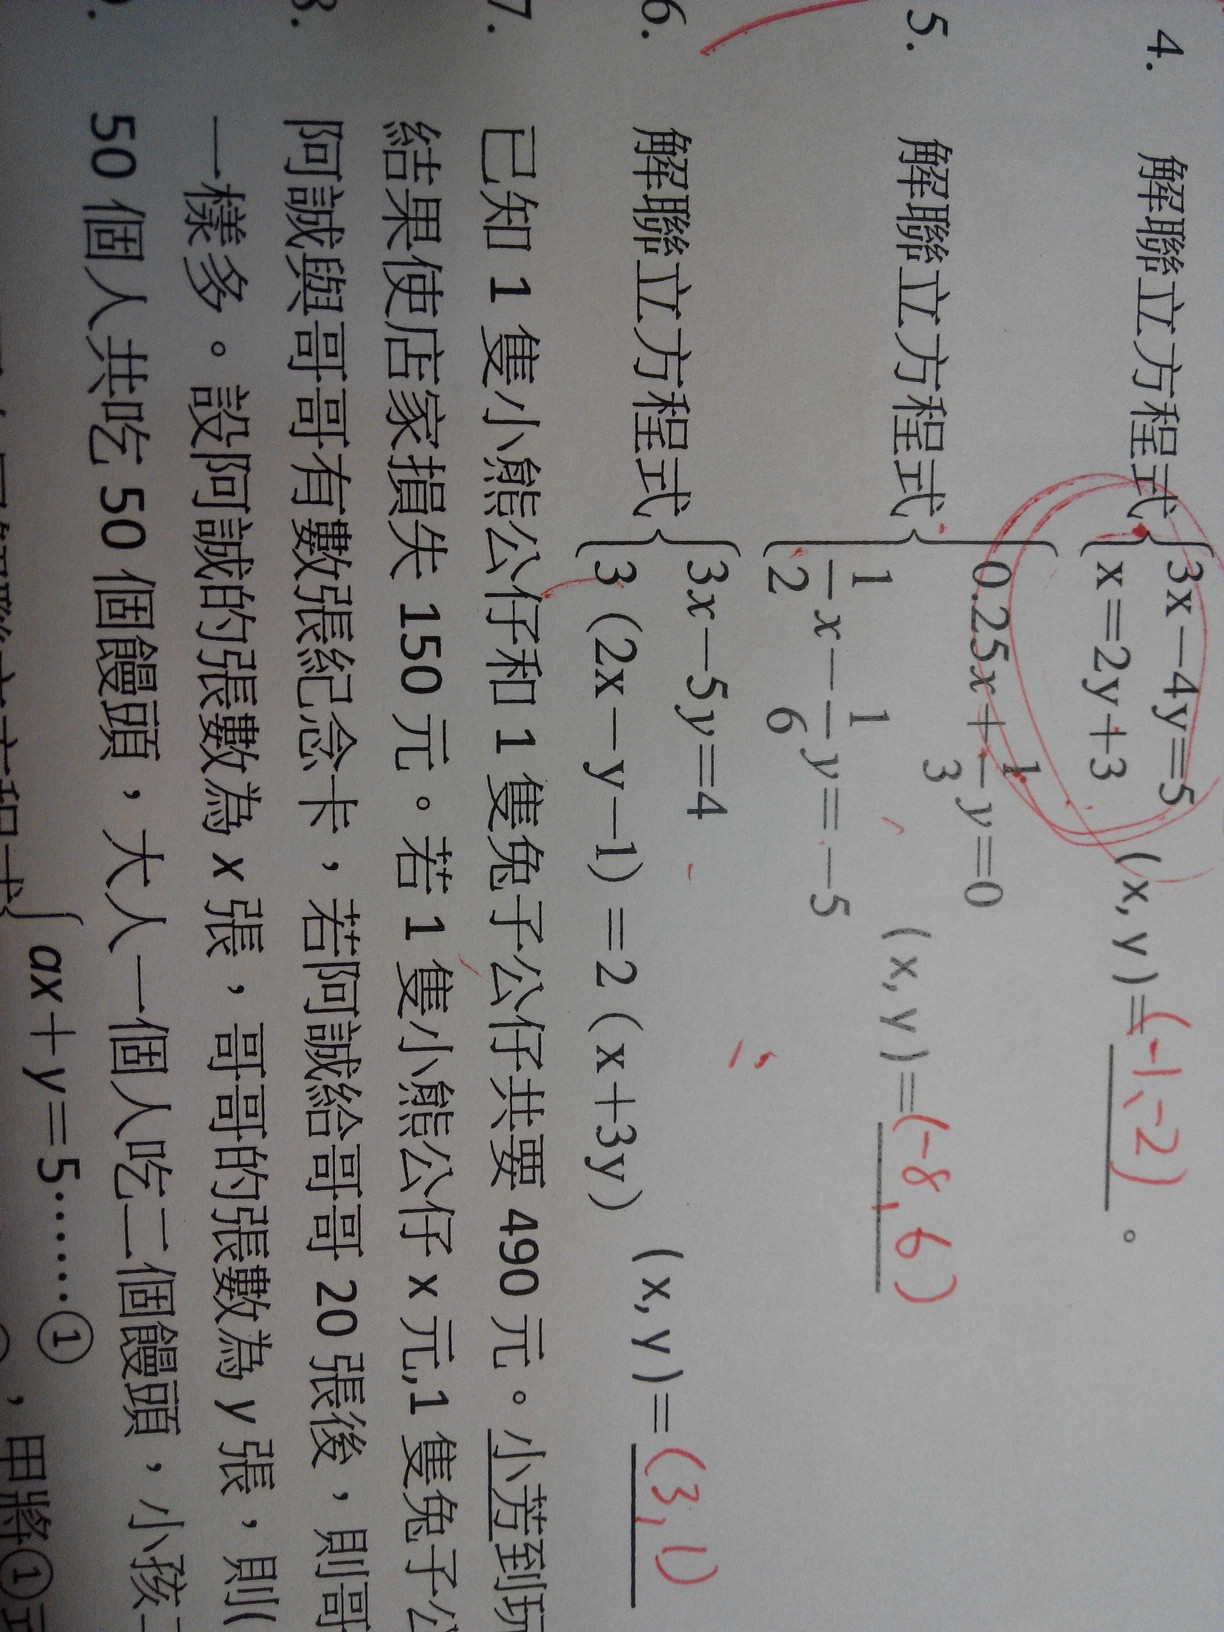 4. 解聯立方程式{3x－4y=5
x=2y+3 (x, y)=(-1,-2)。
5. 解聯立方程式{0.25x+1/3y=0
1/2x－1/6y=－5 (x, y)=(-8,6)
6. 解聯立方程式{3x－5y=4
3(2x－y－1)=2(x+3y) (x, y)=(3,1)
7. 已知 1 隻小熊公仔和 1 隻兔子公仔共要 490 元。小芳到玩
結果使店家損失 150 元。若 1 隻小熊公仔 x 元,1 隻兔子公
8. 阿誠與哥哥有數張紀念卡，若阿誠給哥哥 20 張後，則哥
一樣多。設阿誠的張數為 x 張，哥哥的張數為 y 張，則(
50 個人共吃 50 個饅頭，大人一個人吃二個饅頭，小孩
ax+y=5……① ，甲將①